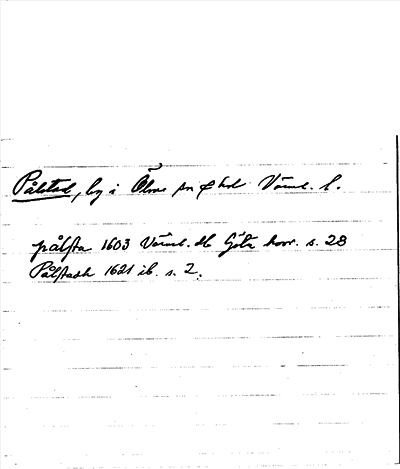 Pålstad, by i Ölme sn o hd Värml. l.
pålsta 1603 Värml. Hl Göta hovr. s. 28
Pålstadh 1621 ib. s. 2.